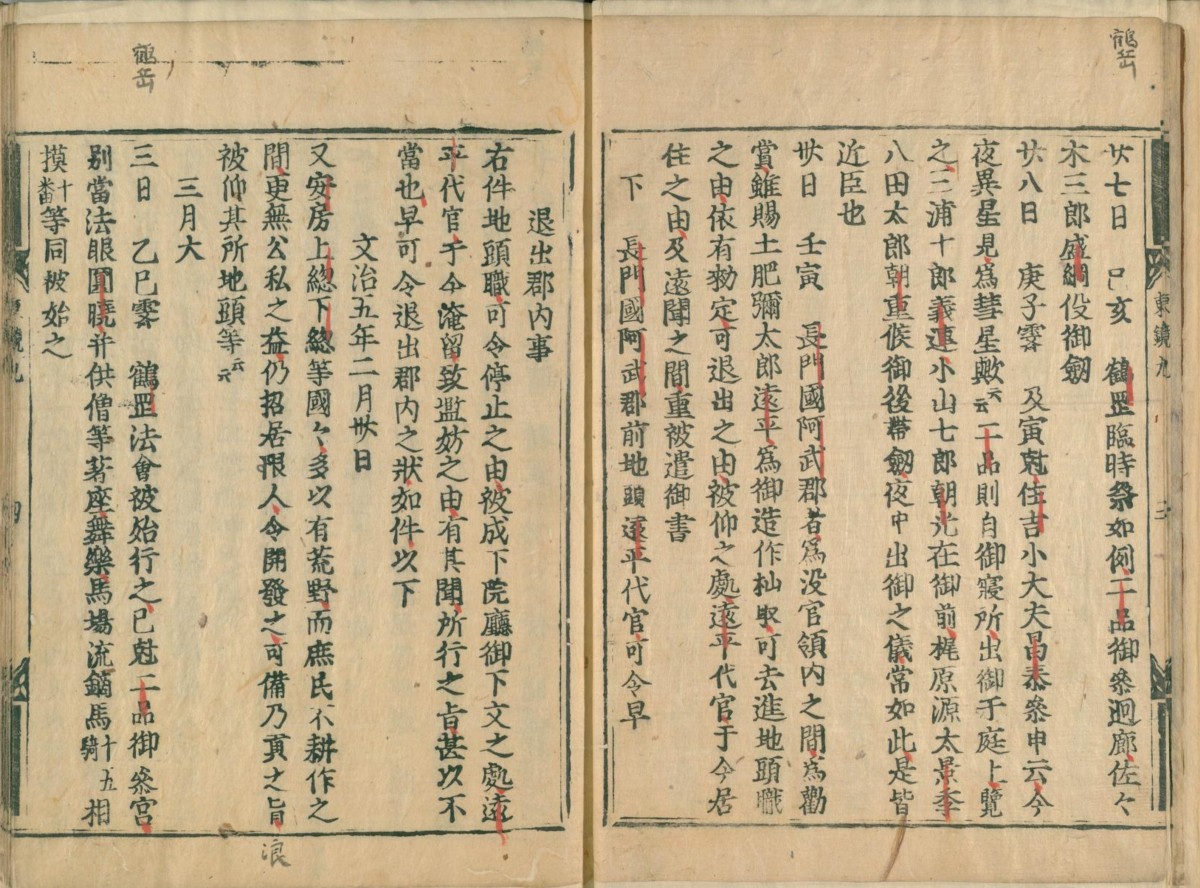 鶴岳
廿七日　己亥　鶴罡臨時祭如例二品御叅廻廊佐々
木三郎盛綱役御劔
廿八日　庚子霽　及寅尅住吉小大夫昌泰叅申云今
夜異星見爲彗星歟云云二品則自御寝所出御于庭上覽
之三浦十郎義連小山七郎朝光在御前梶原源太景季
八田太郎朝重候御後帶劔夜中出御之儀常如此是皆
近臣也
卅日　壬寅　長門國阿武郡者爲没官領内之間爲勸
賞雖賜土肥彌太郎遠平爲御造作杣取可去進地頭職
之由依有勅定可退出之由被仰之處遠平代官于今居
住之由及遠聞之間重被遣御書
下　長門國阿武郡前地頭遠平代官可令早
東鏡九
三
鶴岳
退出郡内事
右件地頭職可令停止之由被成下院廳御下文之處遠
平代官于今淹留致濫妨之由有其聞所行之旨甚以不
當也早可令退出郡内之狀如件以下
文治五年二月卅日
又安房上総下総等國々多以有荒野而庶民不耕作之
間更無公私之益仍招居浪人令開發之可備乃貢之旨
被仰其所地頭等云云
三月大
三日　乙巳霽　鶴罡法會被始行之巳尅二品御叅宮
別當法眼圓曉并供僧等著座舞樂馬場流鏑馬十五騎相
摸十番等同被始之
東鏡九
四
浪